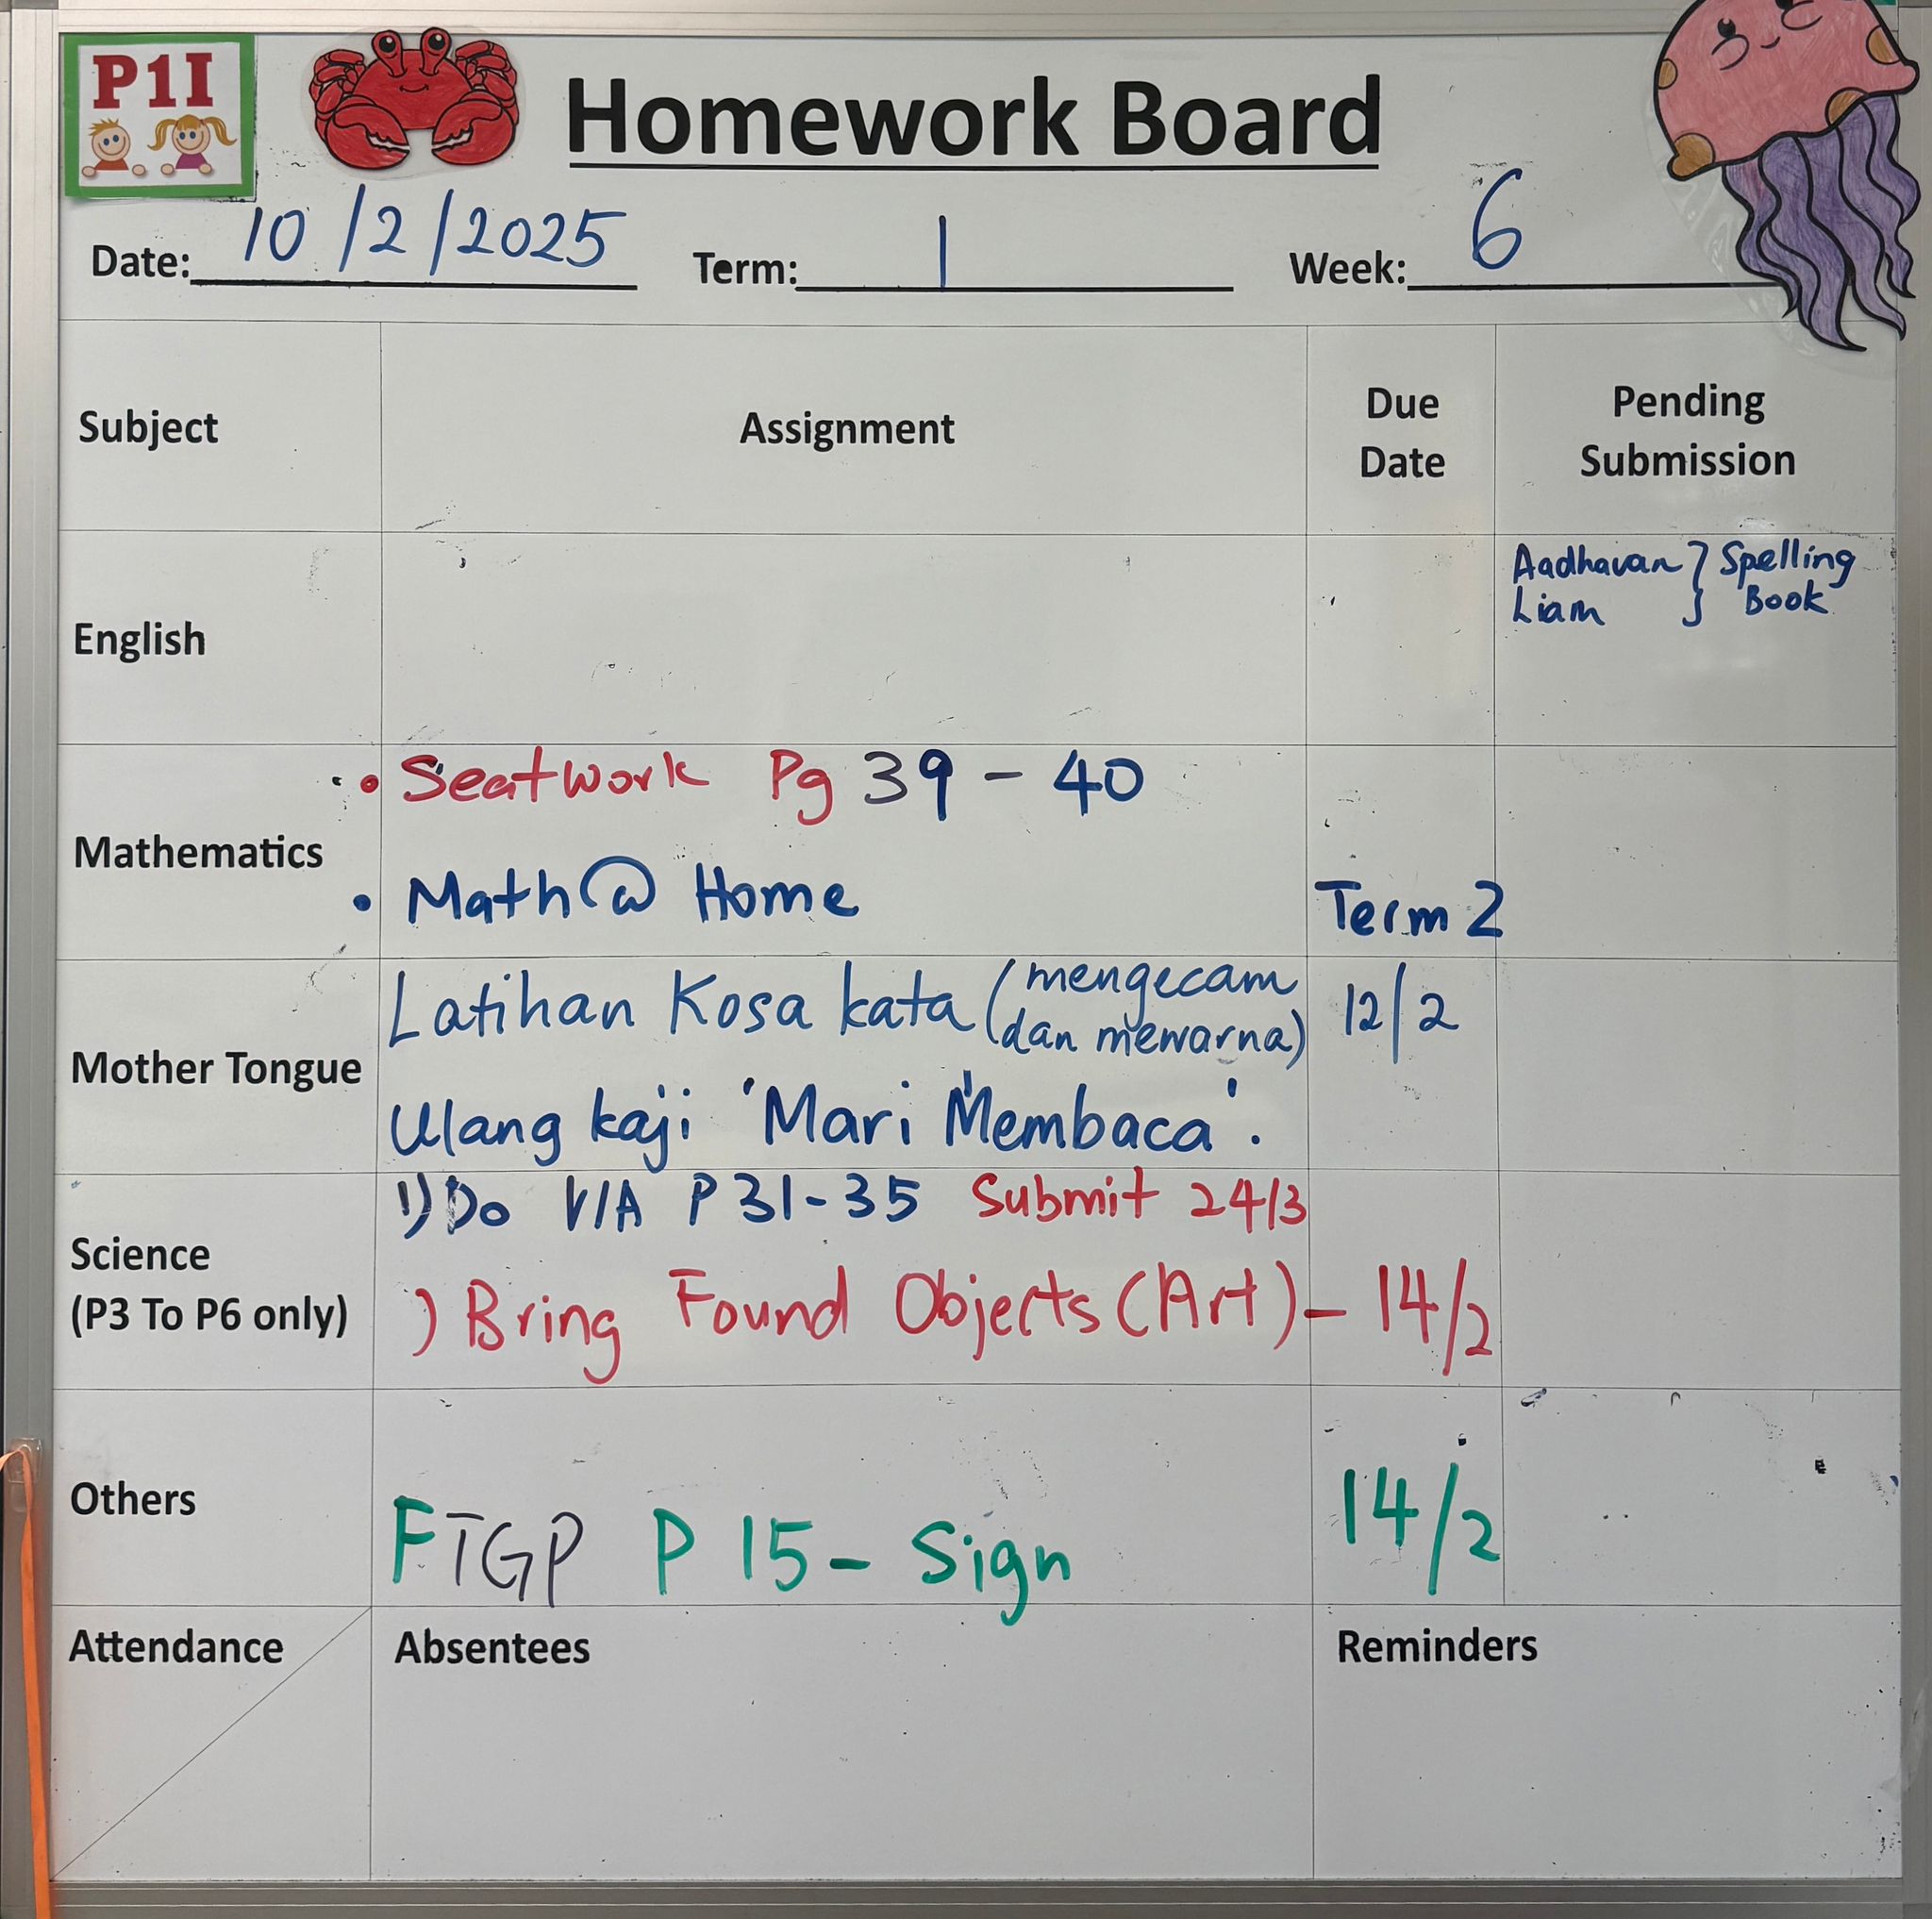 P1I
Homework Board
Date: 10/2/2025 Term: 1 Week: 6
Subject Assignment Due Date Pending Submission
English
Aadhavan } Spelling
Liam } Book
Mathematics
• Seatwork Pg 39 - 40
• Math @ Home Term 2
Mother Tongue
Latihan Kosa kata (mengecam dan mewarna) 12/2
Ulang kaji 'Mari Membaca'.
Science
(P3 To P6 only)
1) Do V/A P 31-35 Submit 24/3
) Bring Found Objects (Art) - 14/2
Others
FTGP P 15 - Sign 14/2
Attendance Absentees Reminders